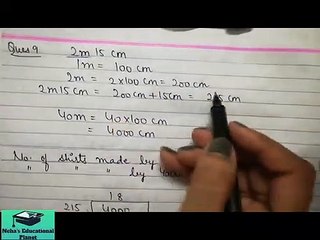 Ques 9 2m 15 cm
1m = 100 cm
2m = 2x100 cm = 200 cm
2m 15 cm = 200 cm + 15cm = 2 cm
40m = 40x100 cm
= 4000 cm
No. of shirts made by
" " " by
18
215 4000
Neha's Educational
Planet